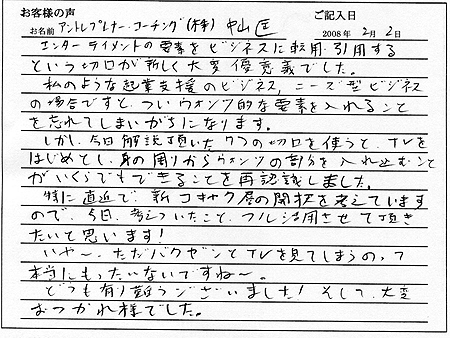 お客様の声
ご記入日
お名前 アントレプレナーコーチング(株) 中山 匡
2008年 2月 2日
エンターテイメントの要素をビジネスに転用・引用する
という切口が新しく大変優意義でした。
私のような起業支援のビジネス、ニーズ型ビジネス
の場合ですと、ついウォンツ的な要素を入れること
を忘れてしまいがちになります。
しかし、今日解説頂いた7つの切口を使うと、TVを
はじめとし、身の周りからウォンツの部分を入れ込むこと
がいくらでもできることを再認識しました。
特に直近で、新コキャク層の開拓を考えています
ので、今日、考えついたこと、フル活用させて頂き
たいと思います!
いや〜、ただバクゼンとTVを見てしまうのって
本当にもったいないですね〜。
どうも有り難うございました! そして、大変
おつかれ様でした。